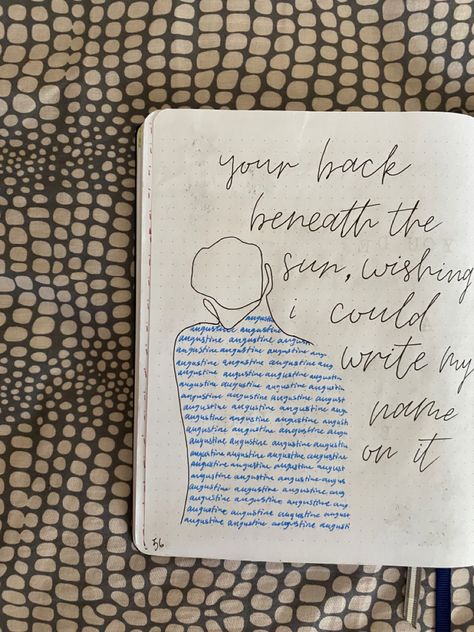 your back
beneath the
sun, wishing
i could
write my
name
on it
augustin
augustine augustine
augustine augustine augustin
augustine augustine augustine aug
augustine augustine augustine aug
augustine augustine augustine augustin
augustine augustine augustine augustin
augustine augustine augustine august
augustine augustine augustine aug
augustine augustine augustine augus
augustine augustine augustine augusti
augustine augustine augustine augustin
augustine augustine augustine augustine
augustine augustine augustine augusti
augustine augustine augustine augus
augustine augustine augustine aug
augustine augustine augustine aug
augustine augustine augustine augu
augustine augustine augustine augusti
56